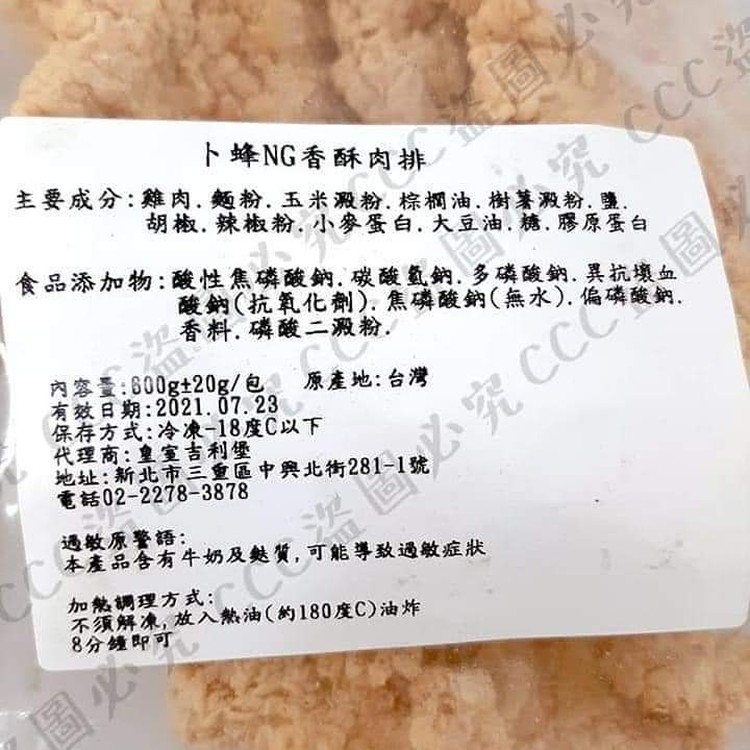 卜蜂NG香酥肉排
主要成分:雞肉.麵粉.玉米澱粉.棕櫚油.樹薯澱粉.鹽.
胡椒.辣椒粉.小麥蛋白.大豆油.糖.膠原蛋白
食品添加物:酸性焦磷酸鈉.碳酸氫鈉.多磷酸鈉.異抗壞血
酸鈉(抗氧化劑).焦磷酸鈉(無水).偏磷酸鈉.
香料.磷酸二澱粉.
內容量:800g±20g/包 原產地:台灣
有效日期:2021.07.23
保存方式:冷凍-18度C以下
代理商:皇室吉利堡
地址:新北市三重區中興北街281-1號
電話02-2278-3878
過敏原警語:
本產品含有牛奶及麩質,可能導致過敏症狀
加熱調理方式:
不須解凍,放入熱油(約180度C)油炸
8分鐘即可
CCC盜圖必究